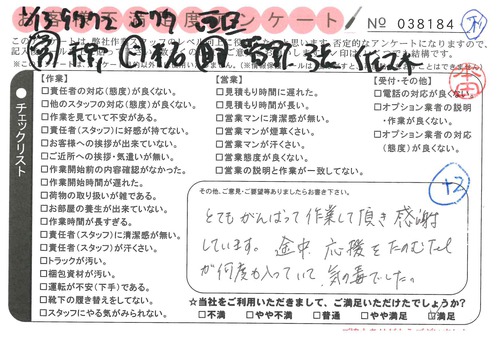 お客様満足度アンケート
No 038184
チェックリスト
【作業】
□責任者の対応(態度)が良くない。
□他のスタッフの対応(態度)が良くない。
□作業を見ていて不安がある。
□責任者(スタッフ)に好感が持てない。
□お客様への挨拶が出来ていない。
□ご近所への挨拶・気遣いが無い。
□作業開始前の内容確認がなかった。
□作業開始時間が遅れた。
□荷物の取り扱いが雑である。
□お部屋の養生が出来ていない。
□作業時間が長すぎる。
□責任者(スタッフ)に清潔感が無い。
□責任者(スタッフ)が汗くさい。
□トラックが汚い。
□梱包資材が汚い。
□運転が不安(下手)である。
□靴下の履き替えをしてない。
□スタッフにやる気がみられない。
【営業】
□見積もり時間に遅れた。
□見積もり時間が長い。
□営業マンに清潔感が無い。
□営業マンが煙草くさい。
□営業マンが汗くさい。
□営業態度が良くない。
□営業の説明と作業が一致してない。
【受付・その他】
□電話の対応が良くない。
□オプション業者の説明
・作業が良くない。
□オプション業者の対応
(態度)が良くない。
+2
その他、ご意見・ご要望等ありましたらお書き下さい。
とてもがんばって作業して頂き感謝
しています。途中応援をたのむTel
が何度も入っていて、気の毒でした。
☆当社をご利用いただきまして、ご満足いただけたでしょうか?
□不満 □やや不満 □普通 □やや満足 ☑満足